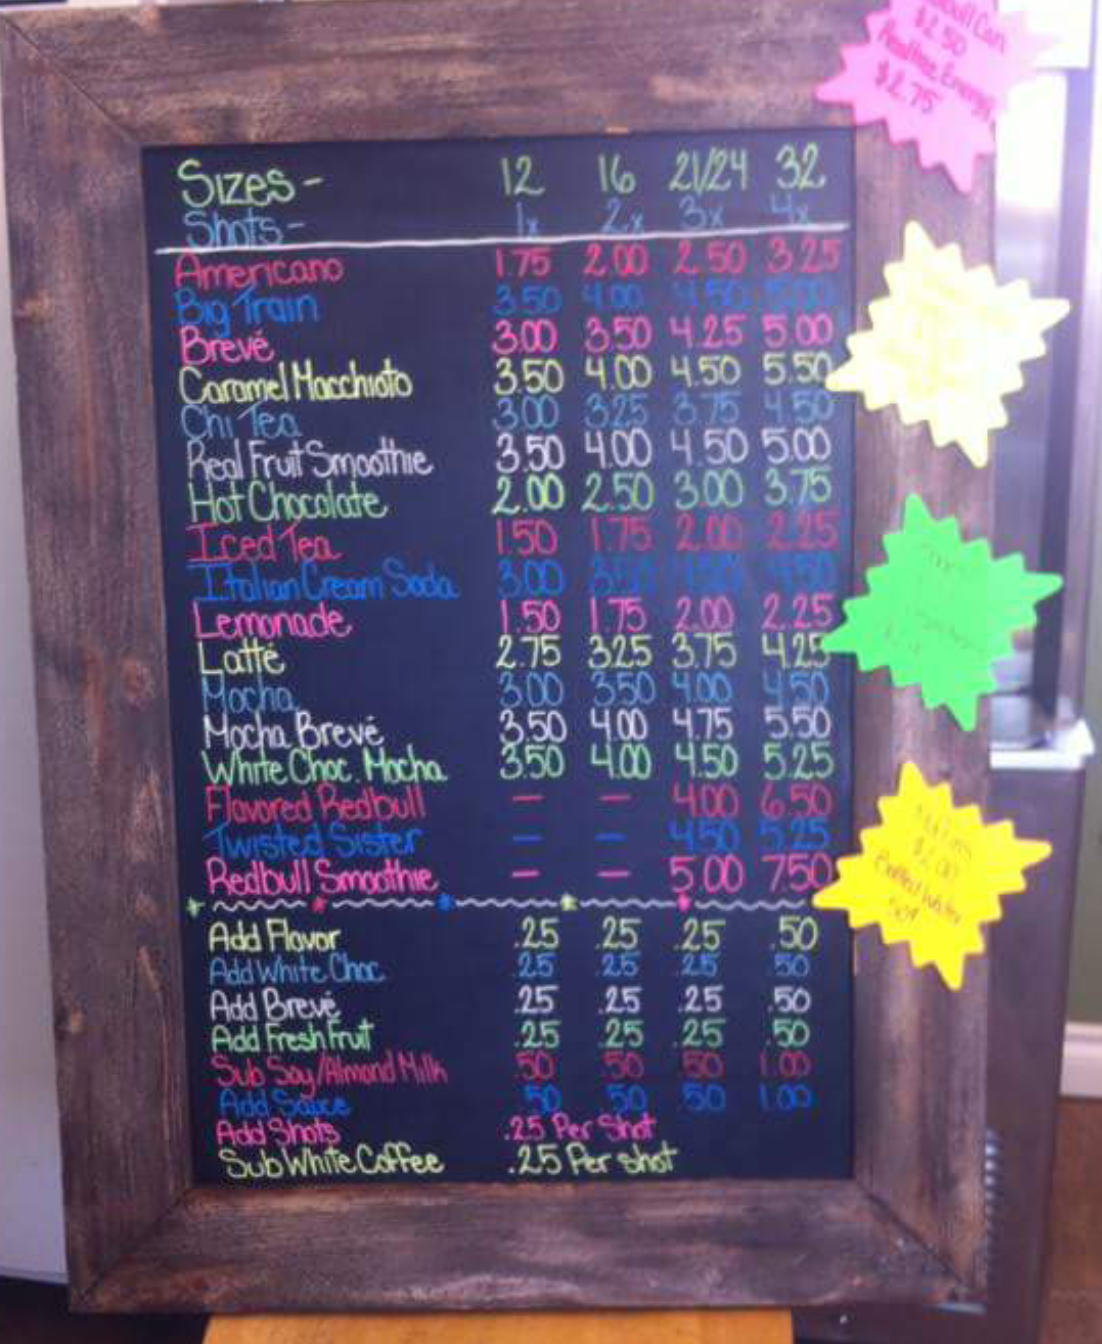 Sizes - 12 16 21/24 32
Shots - 1x 2x 3x 4x
Americano 1.75 2.00 2.50 3.25
Big Train 3.50 4.00 4.50
Brevé 3.00 3.50 4.25 5.00
Caramel Macchiato 3.50 4.00 4.50 5.50
Chi Tea 3.00 3.25 3.75 4.50
Real Fruit Smoothie 3.50 4.00 4.50 5.00
Hot Chocolate 2.00 2.50 3.00 3.75
Iced Tea 1.50 1.75 2.00 2.25
Italian Cream Soda 3.00 3.50 4.50
Lemonade 1.50 1.75 2.00 2.25
Latté 2.75 3.25 3.75 4.25
Mocha 3.00 3.50 4.00 4.50
Mocha Brevé 3.50 4.00 4.75 5.50
White Choc. Mocha 3.50 4.00 4.50 5.25
Flavored Redbull — — 4.00 6.50
Twisted Sister — — 4.50 5.25
Redbull Smoothie — — 5.00 7.50
Add Flavor .25 .25 .25 .50
Add White Choc .25 .25 .25 .50
Add Brevé .25 .25 .25 .50
Add Fresh Fruit .25 .25 .25 .50
Sub Soy/Almond Milk .50 .50 .50 1.00
Add Sauce .50 .50 .50 1.00
Add Shots .25 Per Shot
Sub White Coffee .25 Per shot
Can
$2.50
Energy
$2.75
$2.00
Bottled Water
50¢